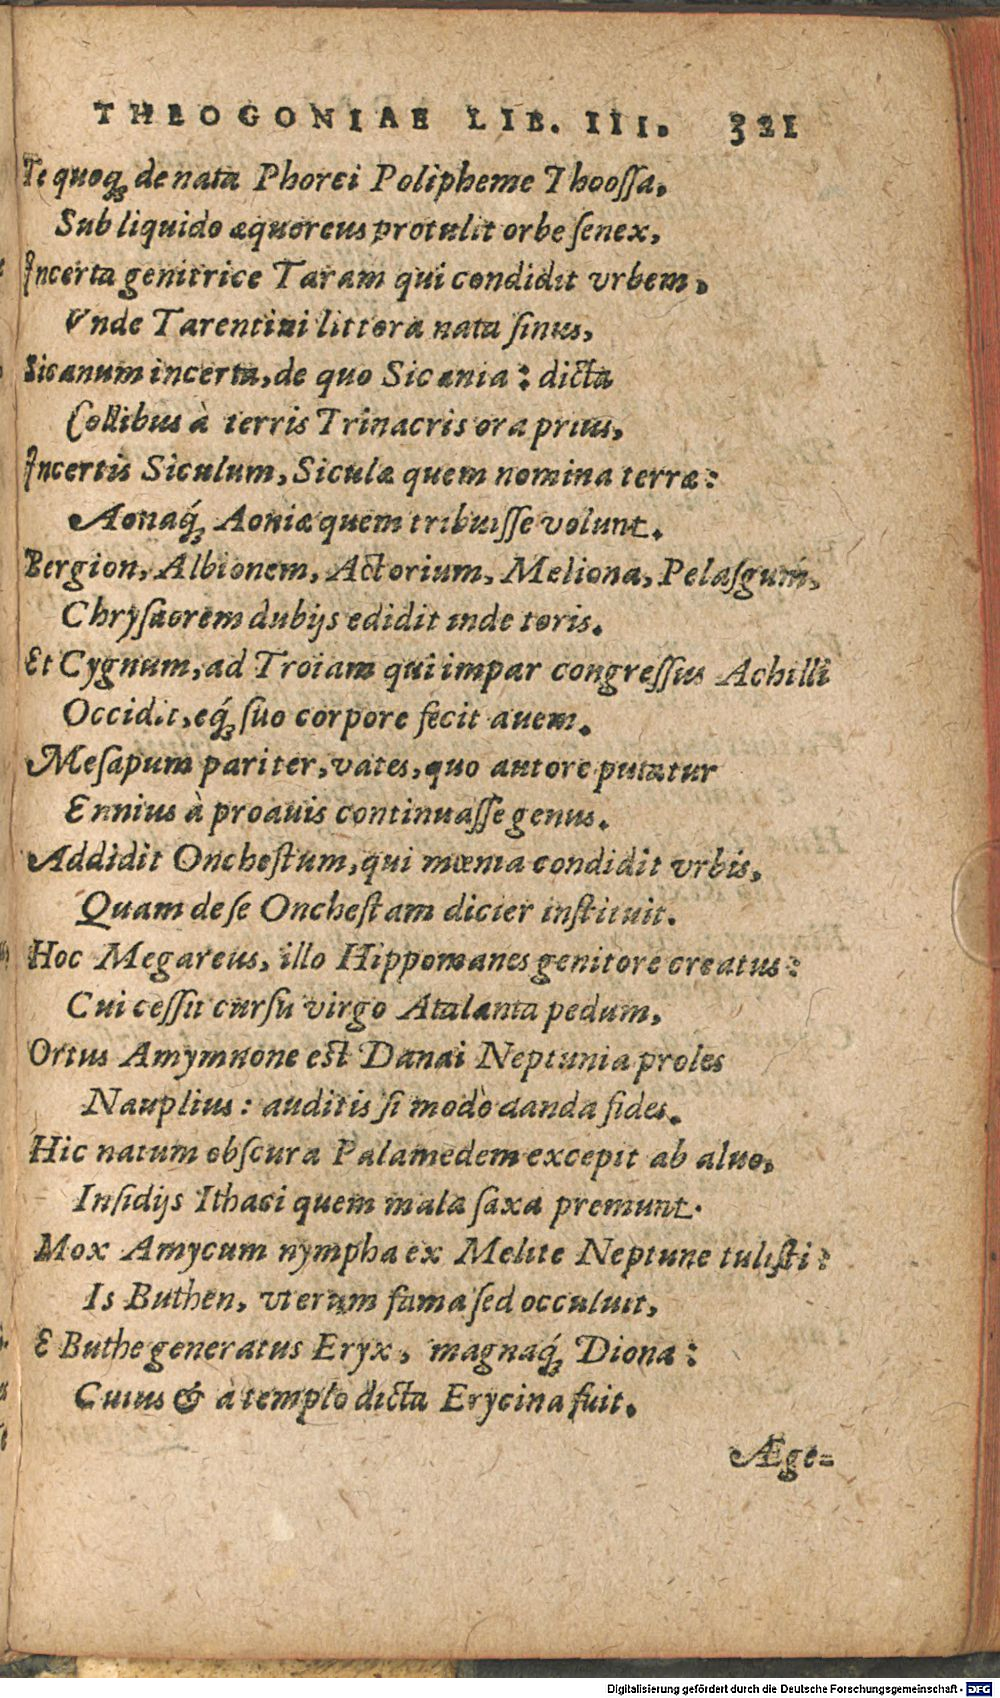 THEOGONIAE LIB. III. 321
Te quoq; de nata Phorci Polipheme Thoossa,
Sub liquido æquoreus protulit orbe senex,
Incerta genitrice Taram qui condidit vrbem,
Vnde Tarentini littora nata sinus,
Sicanum incerta, de quo Sicania: dicta
Collibus à terris Trinacris ora prius,
Incertis Siculum, Siculæ quem nomina terræ:
Aonaq́; Aoniæ quem tribuisse volunt.
Bergion, Albionem, Actorium, Meliona, Pelasgum,
Chrysaorem dubijs edidit inde toris.
Et Cygnum, ad Troiam qui impar congressus Achilli
Occidit, eq́; suo corpore fecit auem.
Mesapum pariter, vates, quo autore putatur
Ennius à proauis continuasse genus.
Addidit Onchestum, qui mœnia condidit vrbis,
Quam de se Onchestam dicier instituit.
Hoc Megareus, illo Hippomanes genitore creatus:
Cui cessit cursu virgo Atalanta pedum,
Ortus Amymnone est Danai Neptunia proles
Nauplius: auditis si modò danda fides.
Hic natum obscura Palamedem excepit ab aluo,
Insidijs Ithaci quem mala saxa premunt.
Mox Amycum nympha ex Melite Neptune tulisti:
Is Buthen, vterum fama sed occuluit,
E Buthe generatus Eryx, magnaq́; Diona:
Cuius & à templo dicta Erycina fuit.
Æge-
Digitalisierung gefördert durch die Deutsche Forschungsgemeinschaft - DFG